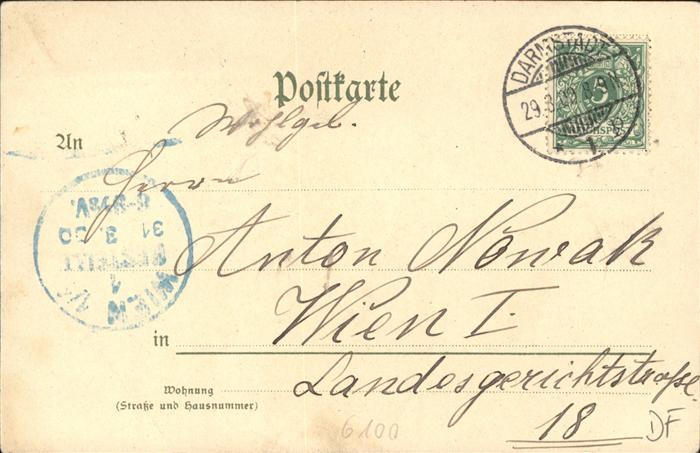 Postkarte
DARMSTADT
29.3.
5
REICHSPOST
1.
An
Wohlgeb.
Herrn
Anton Nowak
in Wien I.
Landesgerichtstraße
18
Wohnung
(Straße und Hausnummer)
WIEN 1/1
BESTELLT
31 3. 00
6100
DF